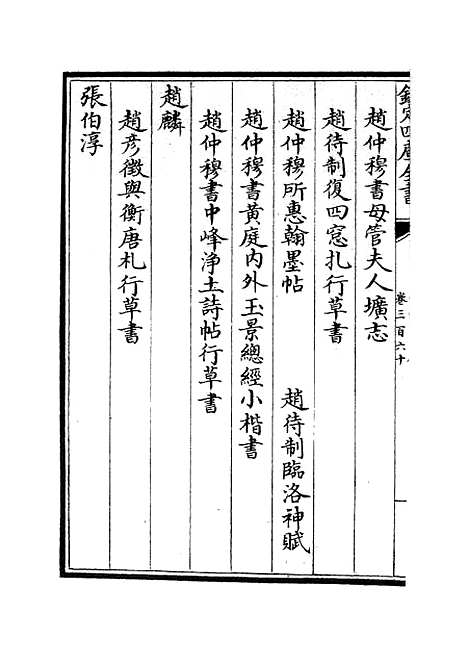 欽定四庫全書
卷三百六十
趙仲穆書母管夫人壙志
趙待制復四窓扎行草書
趙仲穆所惠翰墨帖　趙待制臨洛神賦
趙仲穆書黃庭內外玉景總經小楷書
趙仲穆書中峰淨土詩帖行草書
趙麟
趙彥徵與衡唐札行草書
張伯淳